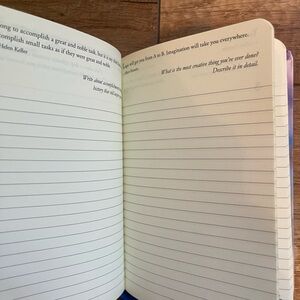 ong to accomplish a great and noble task, but it is my
complish small tasks as if they were great and noble.
Helen Keller
Write about accomplishment
history that
will get you from A to B. Imagination will take you everywhere.
What is the most creative thing you've ever done?
Describe it in detail.